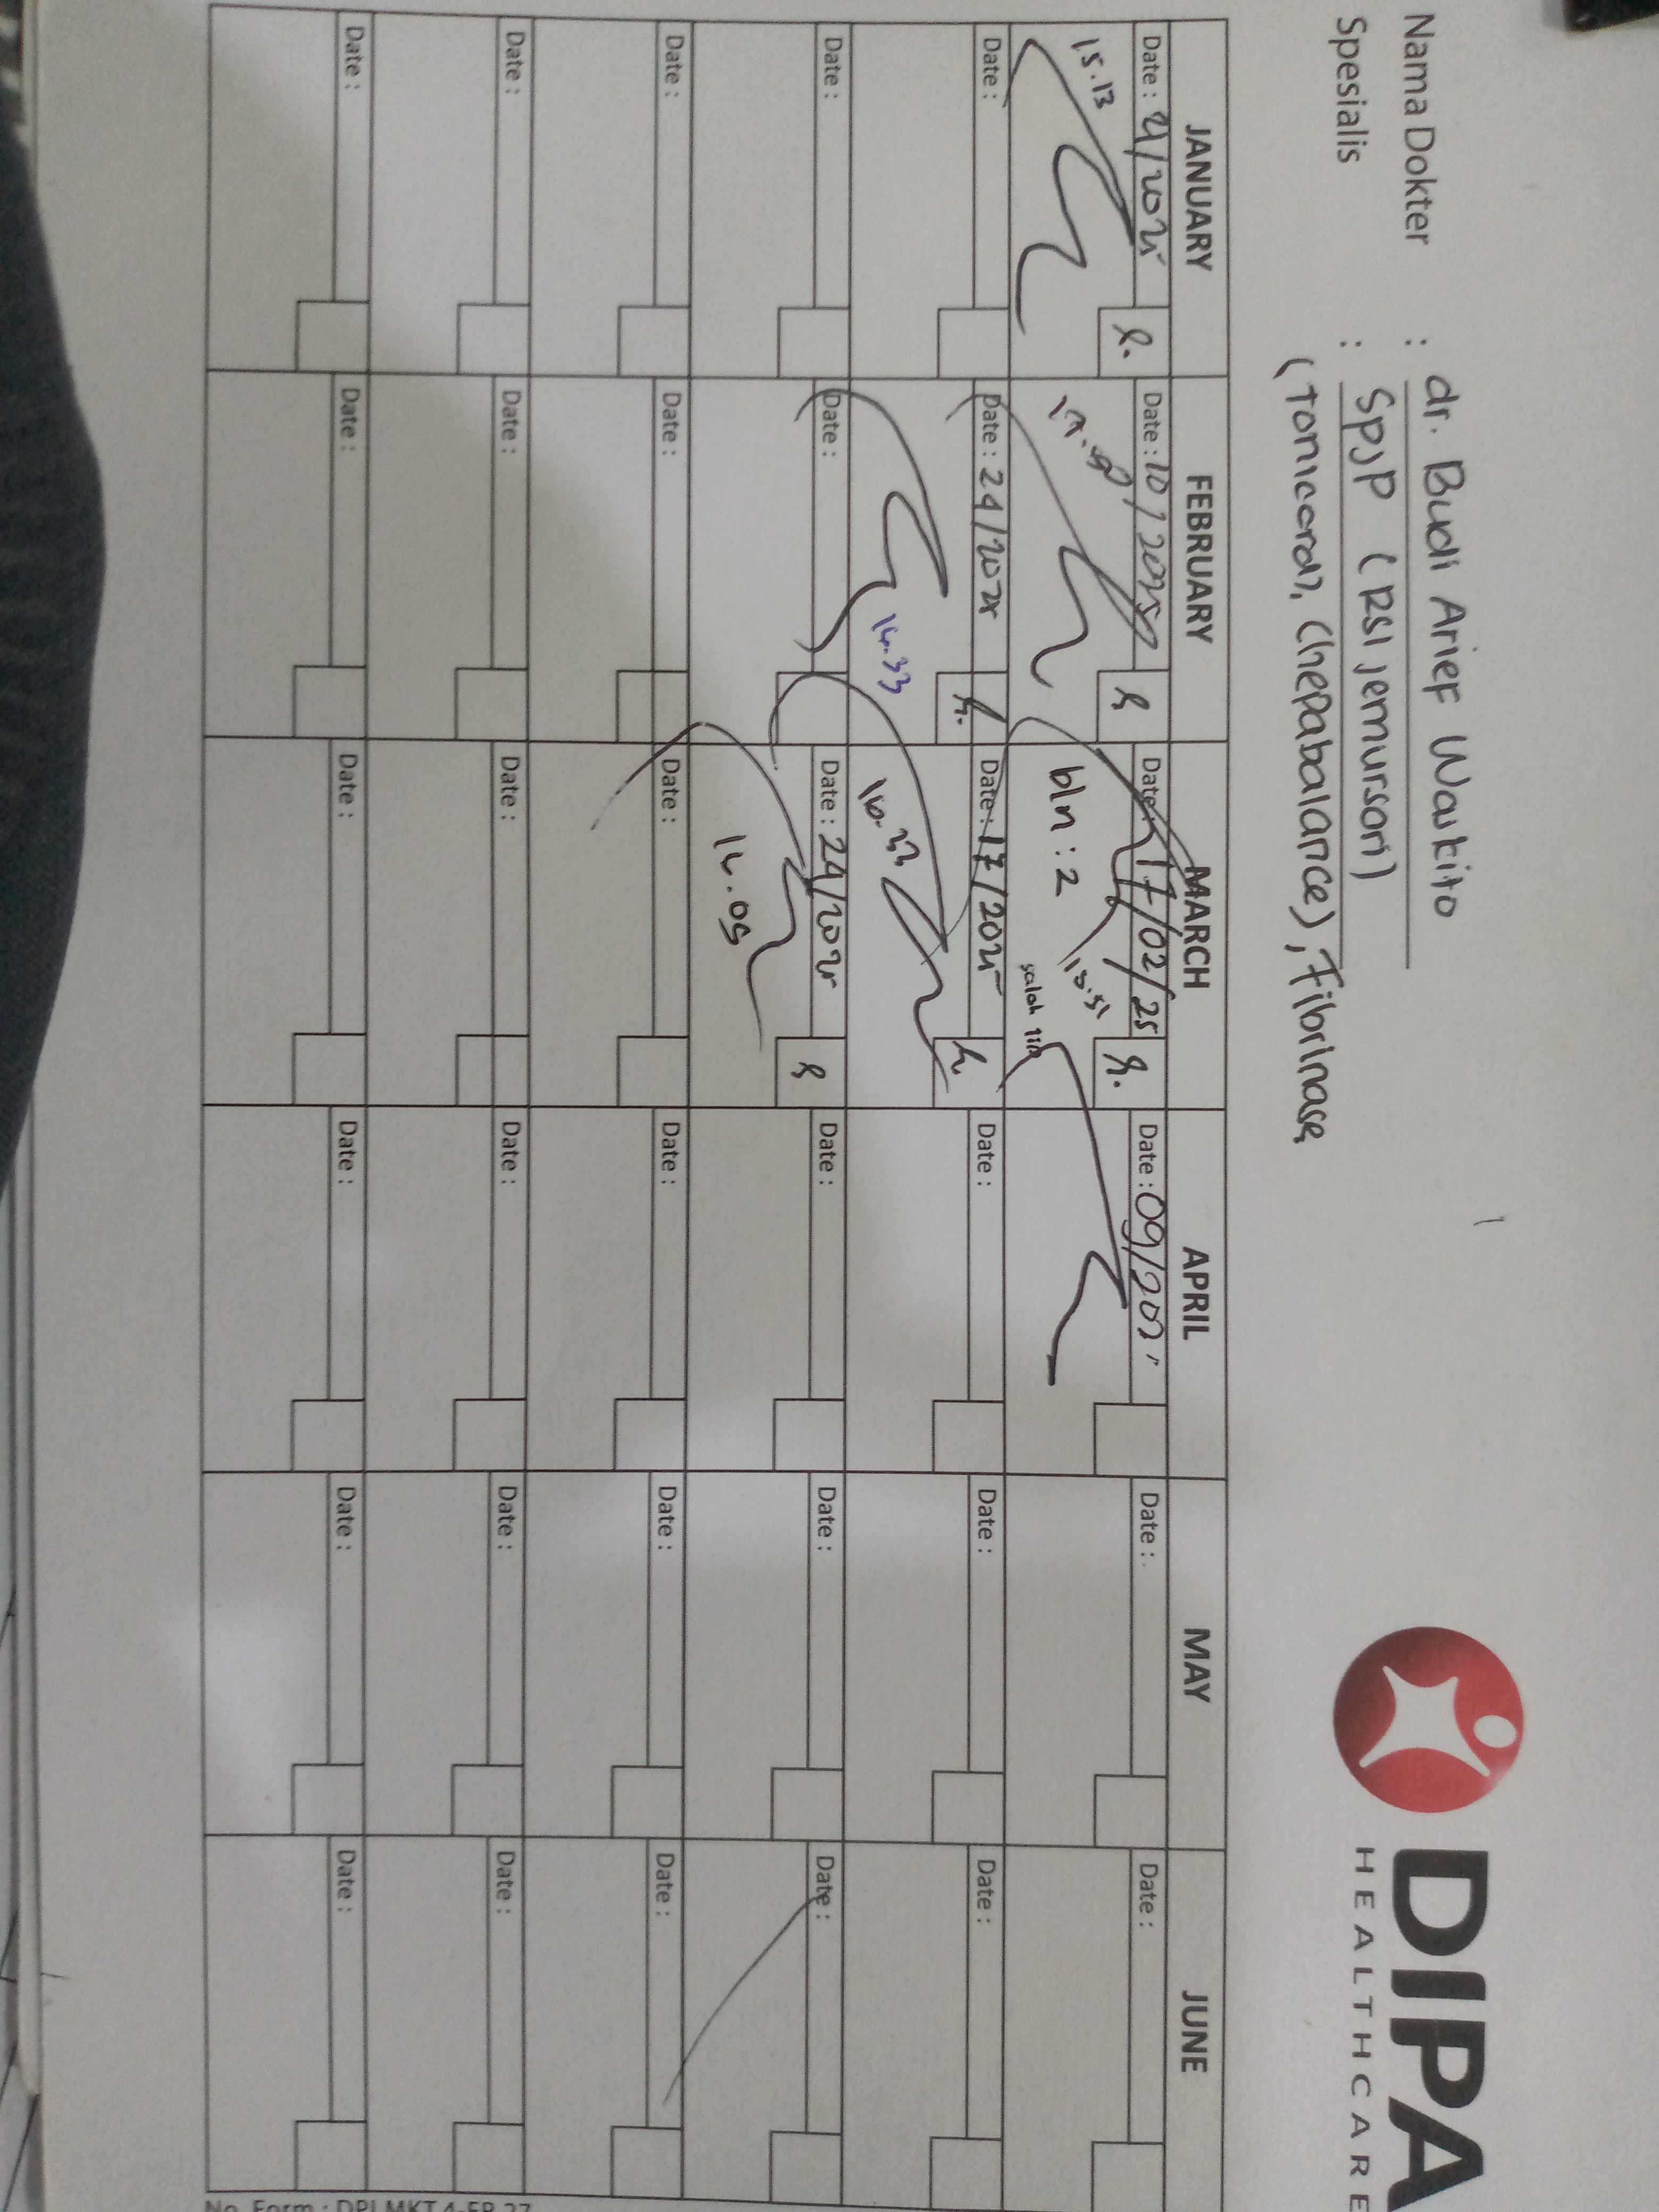 Nama Dokter : dr. Budi Arief Waskito
Spesialis : SpJP (RSI Jemursari)
(Tonicard), (hepabalance), Fibrinase
DIPA
HEALTHCARE
JANUARY FEBRUARY MARCH APRIL MAY JUNE
Date : Date : 10/2025 Date : 17/02/25 Date : 09/202 Date : Date :
15.13 bln : 2
salah
Date : Date : 24/2025 Date : 17/2025 Date : Date : Date :
14.33
Date : Date : Date : 24/2025 Date : Date : Date :
14.05
Date : Date : Date : Date : Date : Date :
Date : Date : Date : Date : Date : Date :
Date : Date : Date : Date : Date : Date :
No. Form : DPI.MKT.4-FR.27